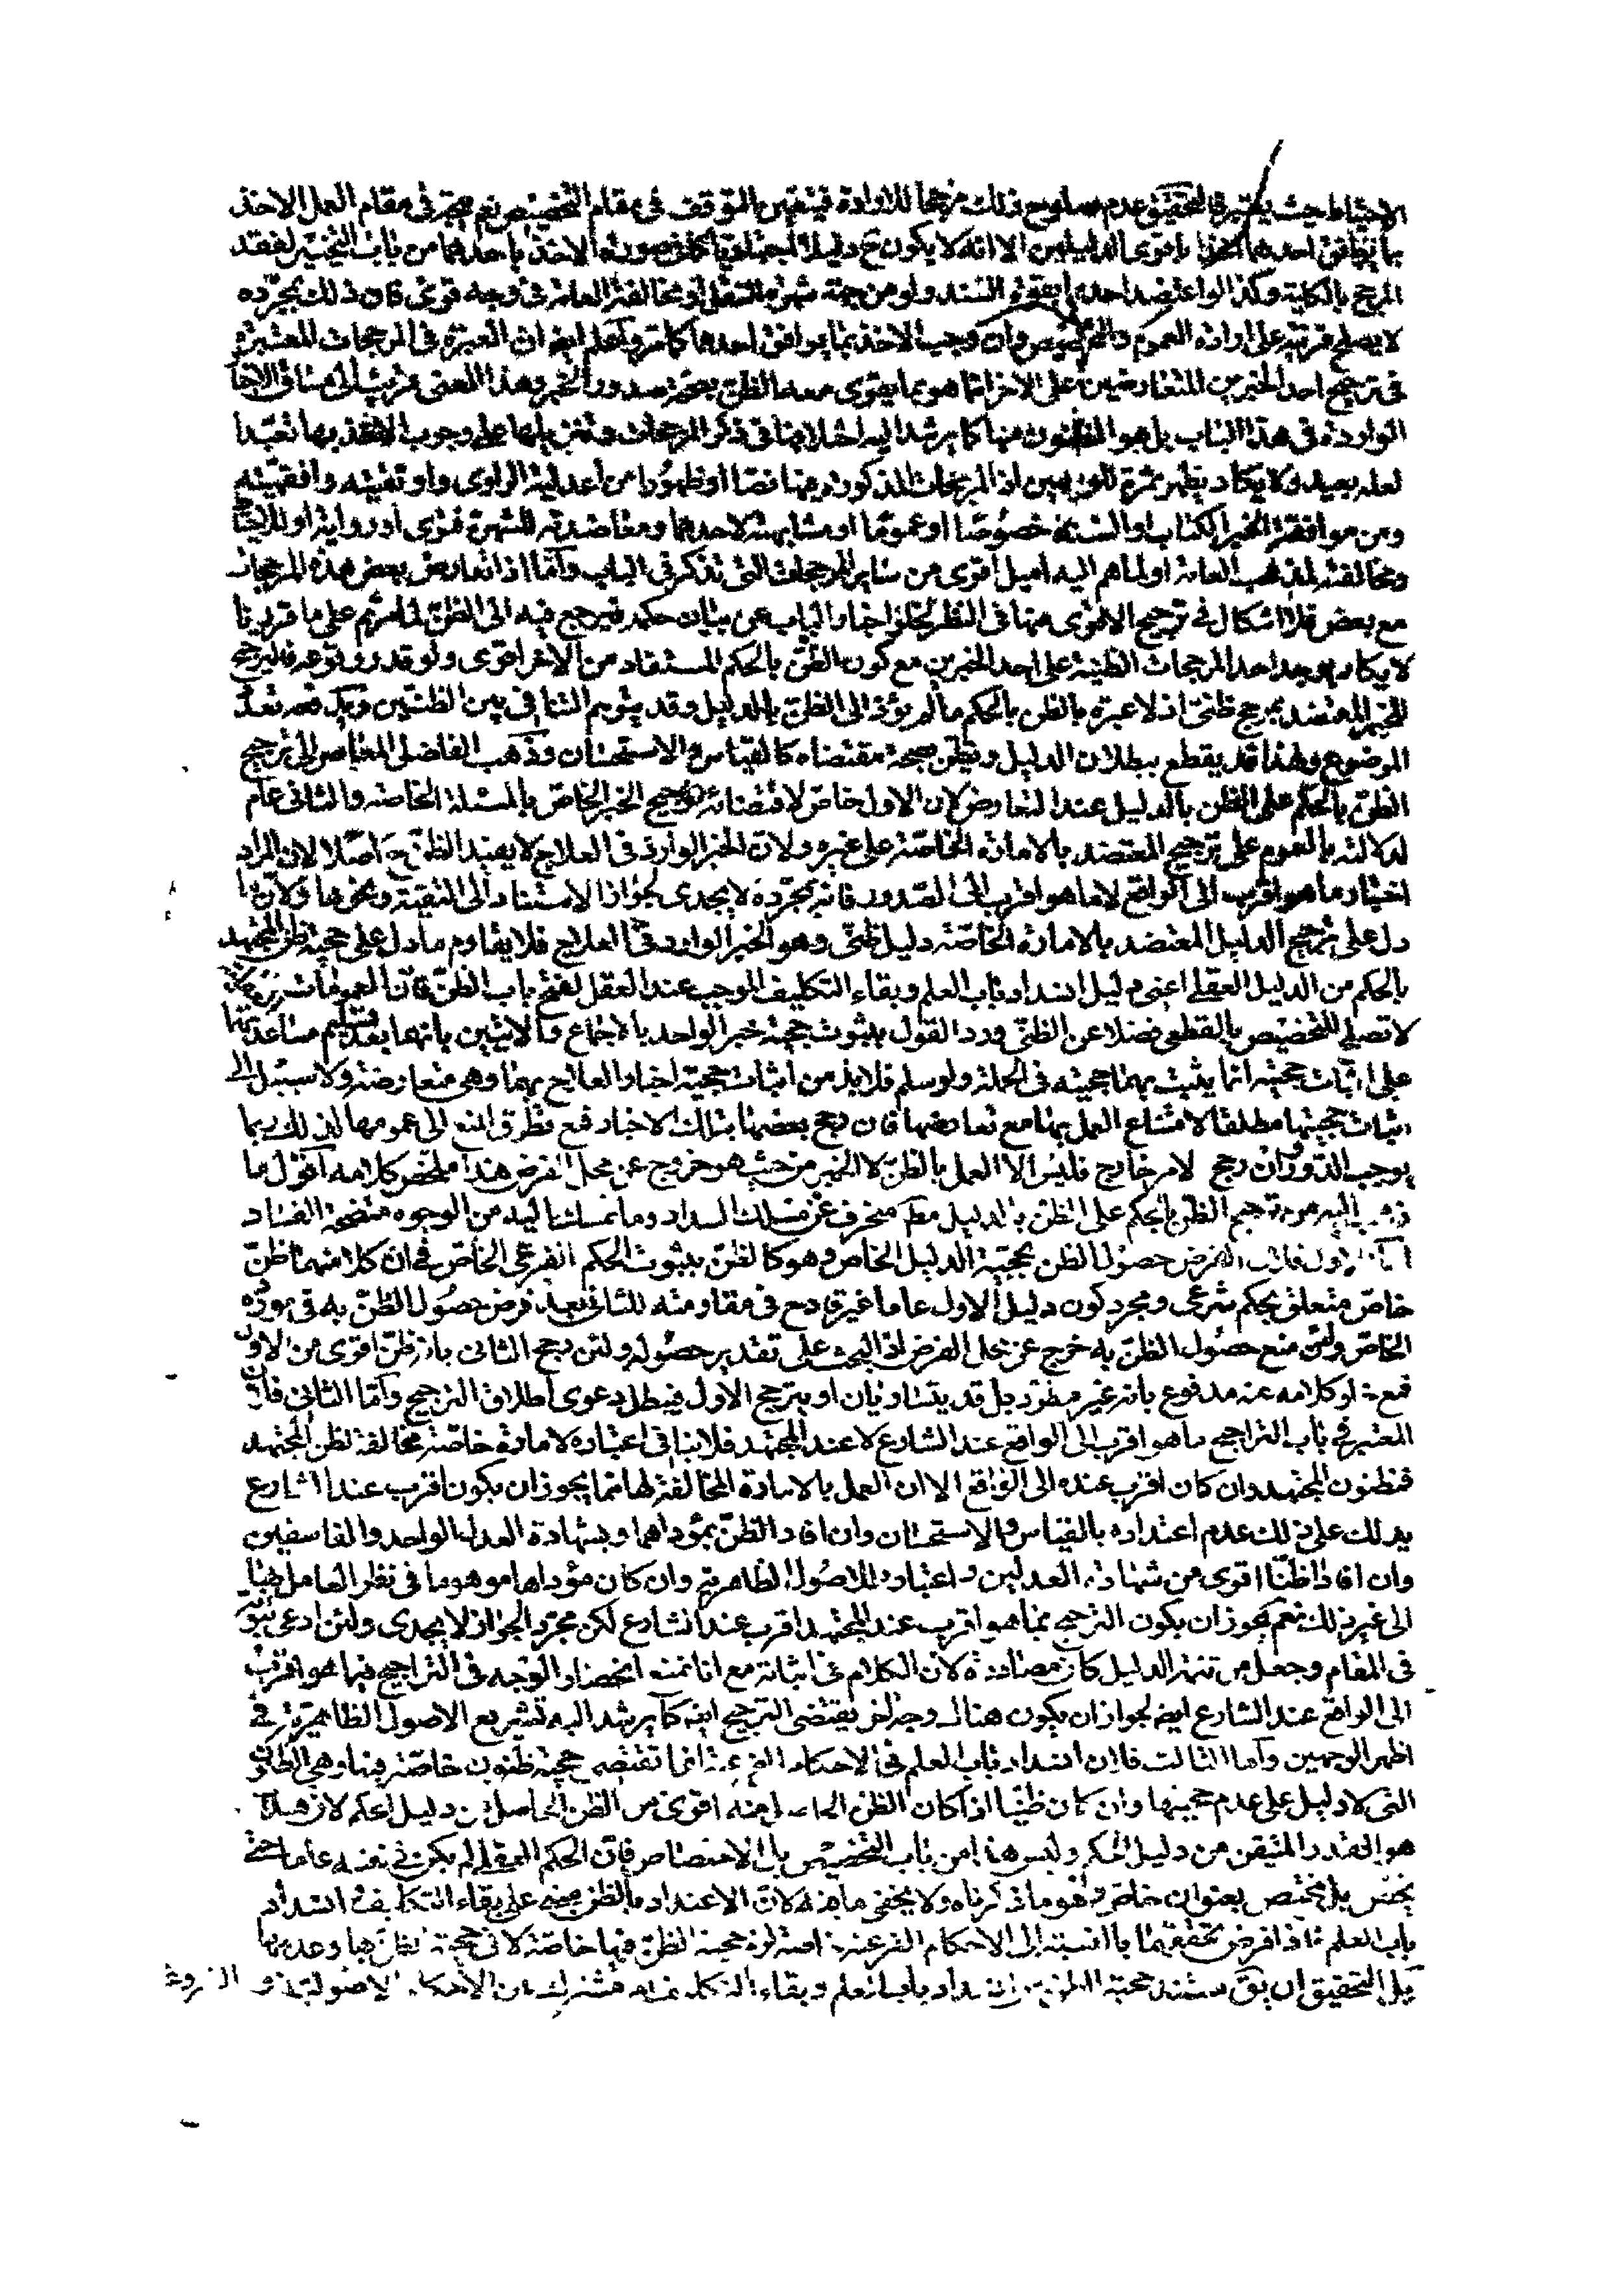 الاحتياط حيث يعتبر فالتحقيق عدم صلوح ذلك مرجحا للارادة فيتعين التوقف في مقام التخصيص نعم يتجه في مقام العمل الاخذ
بما يوافق احدهما اخذا باقوى الدليلين الا انه لا يكون ح دليلا اجتهاديا كما في صورة الاخذ باحدهما من باب التخيير لفقد
المرجح بالكلية وكذا لو اعتضد احدهما بقوة السند ولو من جهة شهرة النقل او مخالفة العامة في وجه قوى فان ذلك بمجرده
لا يصلح قرينة على ارادة العموم والتخصيص وان وجب الاخذ بما يوافق احدهما كما مر واعلم ايضا ان العبرة في المرجحات المعتبرة
في ترجيح احد الخبرين المتعارضين على الاخر انما هو بما يقوى معه الظن بصحة صدور الخبر وهذا المعنى قريب الى مساق الاخبار
الواردة في هذا الباب بل هو المظنون منها كما يرشد اليه اختلافها في ذكر المرجحات وتنزيلها على وجوب الاخذ بها تعبدا
لعله بعيد ولا يكاد يظهر ثمرة للوجهين اذ المرجحات المذكورة منها نصا او ظهورا من اعدلية الراوى واوثقيته وافقهيته
ومن موافقة الخبر للكتاب او السنة خصوصا او عموما او مشابهته لاحدهما ومعاضدته للشهرة فتوى او رواية او للاحتياط
ومخالفته لمذهب العامة او لما هم اليه اميل اقوى من ساير المرجحات التى تذكر في الباب واما اذا تعارض بعض هذه المرجحات
مع بعض فلا اشكال في ترجيح الاقوى منها في النظر لخلو اخبار الباب عن بيان حكمه فيرجع فيه الى الظن ثم على ما قررنا
لا يكاد يوجد احد المرجحات الظنية على احد الخبرين مع كون الظن بالحكم المستفاد من الاخر اقوى ولو قدر وقوعه فليرجح
الخبر المعتضد بمرجح ظنى اذ لا عبرة بالظن بالحكم ما لم يؤد الى الظن بالدليل وقد يتوهم التنافى بين الظنين ويدفعه تعدد
الموضوع ولهذا قد يقطع ببطلان الدليل ويظن صحة مقتضاه كالقياس والاستحسان وذهب الفاضل المعاصر الى ترجيح
الظن بالحكم على الظن بالدليل عند التعارض لان الاول خاص لاقتضائه ترجيح الخبر الخاص بالمسئلة الخاصة والثانى عام
لدلالته بالعموم على ترجيح المعتضد بالامارة الخاصة على غيره ولان الخبر الوارد في العلاج لا يفيد الظن ح اصلا لان المراد
اختيار ما هو اقرب الى الواقع لا ما هو اقرب الى الصدور فانه بمجرده لا يجدى لجواز الاستناد الى التقية ونحوها ولان ما
دل على ترجيح الدليل المعتضد بالامارة الخاصة دليل ظنى وهو الخبر الوارد في العلاج فلا يقاوم ما دل على حجية ظن المجتهد
بالحكم من الدليل العقلى اعنى دليل انسداد باب العلم وبقاء التكليف الموجب عند العقل لفتح باب الظن فان العمومات
لا تصلح لتخصيص القطعى فضلا عن الظنى ورد القول بثبوت حجية خبر الواحد بالاجماع والايتين بانهما بعد تسليم مساعدتهما
على اثبات حجيته انما يثبت بهما حجيته في الجملة ولو سلم فلا بد من اثبات حجية اخبار العلاج بهما وهى متعارضة ولا سبيل الى
اثبات حجيتها مطلقا لامتناع العمل بها مع تعارضها فان رجح بعضها بتلك الاخبار فمع تطرق المنع الى عمومها لذلك ربما
يوجب الدور وان رجح لامر خارج فليس الا العمل بالظن لا الخبر من حيث هو خروج عن محل الفرض هذا ملخص كلامه اقول ما
ذهب اليه من ترجيح الظن بالحكم على الظن بالدليل مط منحرف عن مسلك السداد وما تمسك اليه من الوجوه متضحة الفساد
اما الاول فلان الفرض حصول الظن بحجية الدليل الخاص وهو كالظن بثبوت الحكم الفرعى الخاص في ان كلا منهما ظن
خاص متعلق بحكم شرعى ومجرد كون دليل الاول عاما غير قادح في مقاومته للثانى بعد فرض حصول الظن به في مورده
الخاص ولئن منع حصول الظن به خرج عن محل الفرض اذ البحث على تقدير حصوله ولئن رجح الثانى بان ظن اقوى من الاول
فمع خلو كلامه عنه مدفوع بانه غير مطرد بل قد يتساويان او يترجح الاول فيبطل دعوى اطلاق الترجيح واما الثانى فلان
المعتبر في باب التراجيح ما هو اقرب الى الواقع عند الشارع لا عند المجتهد فلا ينافى اعتباره لامارة خاصة مخالفة لظن المجتهد
فمظنون المجتهد وان كان اقرب عنده الى الواقع الا ان العمل بالامارة المخالفة لها مما يجوز ان يكون اقرب عند الشارع
يدلك على ذلك عدم اعتداده بالقياس والاستحسان وان افاد الظن بمؤداهما وبشهادة العدل الواحد والفاسقين
وان افاد ظنا اقوى من شهادة العدلين واعتباره للاصول الظاهرية وان كان مؤداها موهوما في نظر العامل بها
الى غير ذلك نعم يجوز ان يكون الترجيح بما هو اقرب عند المجتهد اقرب عند الشارع لكن مجرد الجواز لا يجدى ولئن ادعى ثبوته
في المقام وجعل من تتمة الدليل كان مصادرة لان الكلام في اثباته مع انا نمنع انحصار الوجه في التراجيح فيما هو اقرب
الى الواقع عند الشارع ايضا لجواز ان يكون هناك وجه اخر يقتضى الترجيح ايضا كما يرشد اليه تشريع الاصول الظاهرية في
اظهر الوجهين واما الثالث فلان انسداد باب العلم في الاحكام الفرعية انما تقتضى حجية ظنون خاصة فيها وهى الظنون
التى لا دليل على عدم حجيتها وان كان ظنيا اذا كان الظن الحاصل منه اقوى من الظن الحاصل من دليل الحكم لان هذا
هو القدر المتيقن من دليل الحكم وليس هذا من باب التخصيص بل الاختصاص فان الحكم العقلى لم يكن في نفسه عاما حتى
يخص بل يختص بعنوان خاص وهو ما ذكرناه ولا يخفى ما فيه لان الاعتداد بالظن مبنى على بقاء التكليف وانسداد
باب العلم فاذا فرض تحققهما بالنسبة الى الاحكام الفرعية خاصة لزم حجية الظن فيها خاصة لا في حجية الظن بها وعدمها
بل التحقيق ان يق مستند حجية الظن من انسداد باب العلم وبقاء التكليف مشترك بين الاحكام الاصولية والفروعية